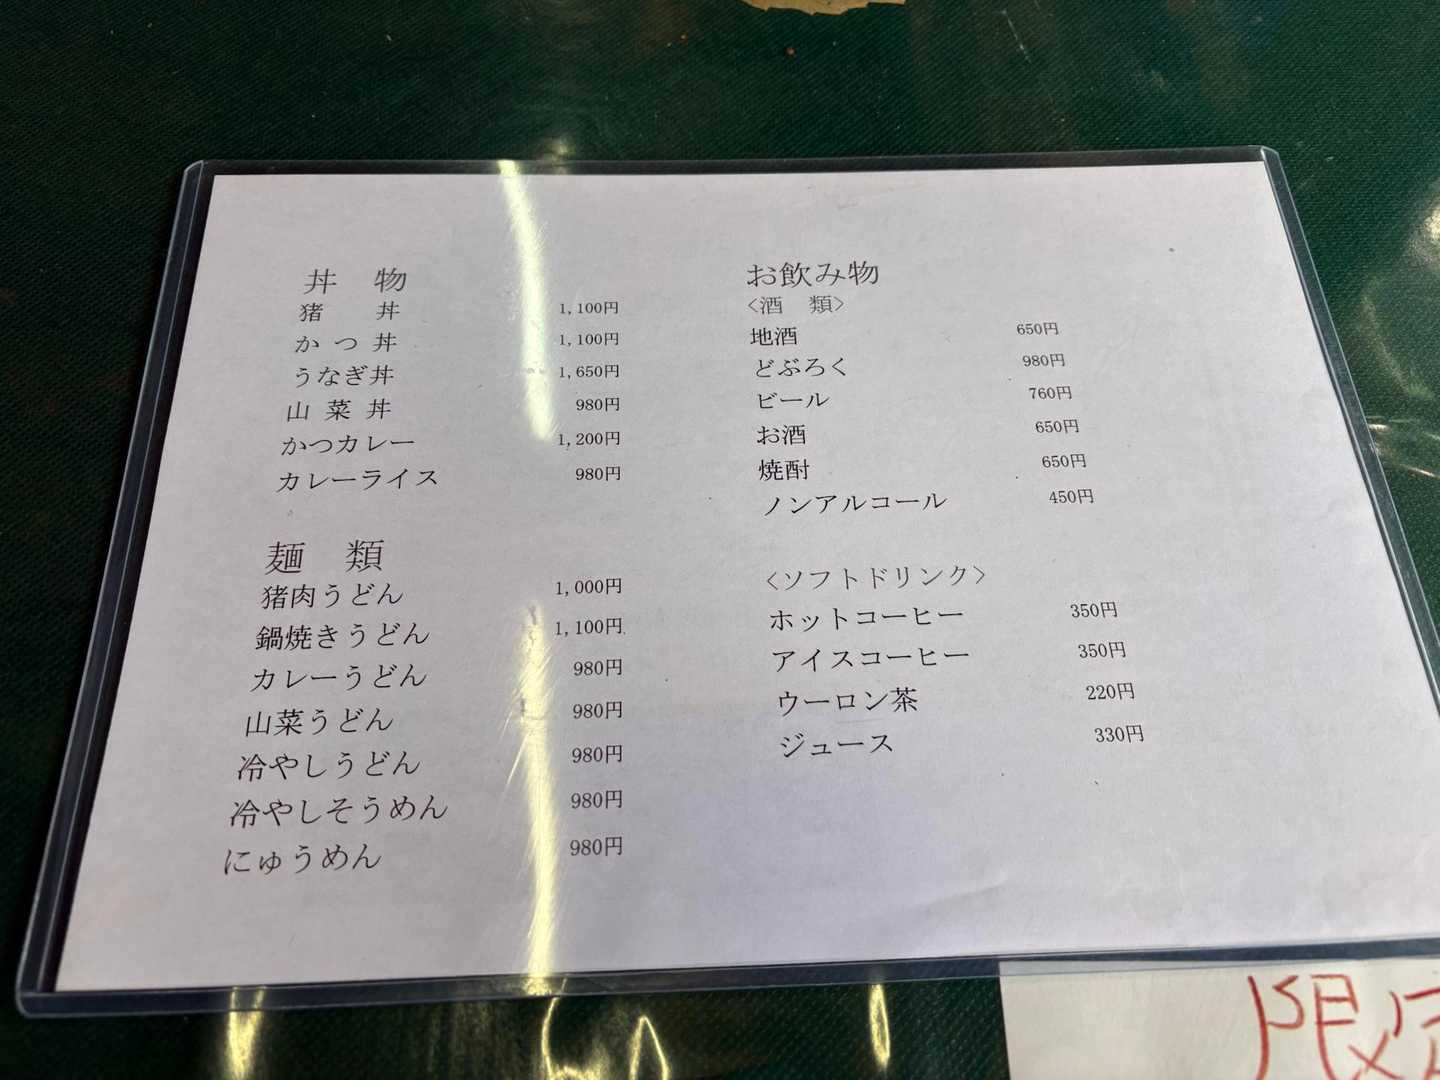 丼　物
猪　　丼 1,100円
か つ 丼 1,100円
うなぎ丼 1,650円
山 菜 丼 980円
かつカレー 1,200円
カレーライス 980円
麺　類
猪肉うどん 1,000円
鍋焼きうどん 1,100円
カレーうどん 980円
山菜うどん 980円
冷やしうどん 980円
冷やしそうめん 980円
にゅうめん 980円
お飲み物
〈酒　類〉
地酒 650円
どぶろく 980円
ビール 760円
お酒 650円
焼酎 650円
ノンアルコール 450円
〈ソフトドリンク〉
ホットコーヒー 350円
アイスコーヒー 350円
ウーロン茶 220円
ジュース 330円
限